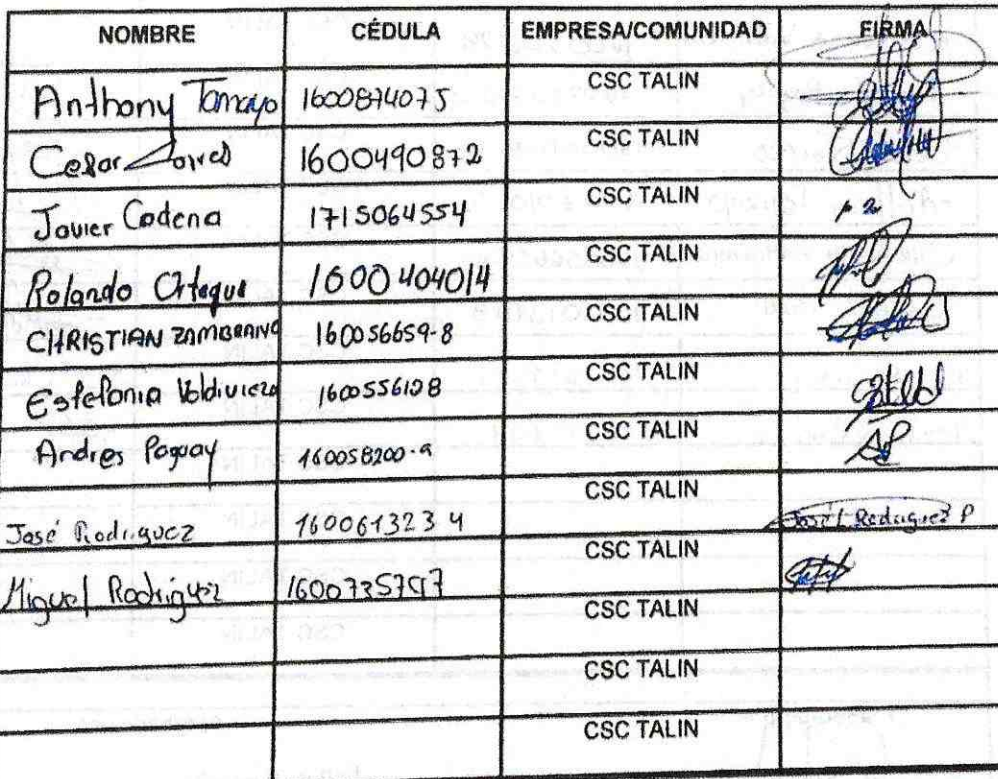 NOMBRE CÉDULA EMPRESA/COMUNIDAD FIRMA
Anthony Tamayo 1600874075 CSC TALIN
Cesar 1600490872 CSC TALIN
Javier Cadena 1715064554 CSC TALIN
Rolando Ortegui 1600404014 CSC TALIN
CHRISTIAN ZAMBRANO 160056659-8 CSC TALIN
Estefania Valdiviezo 1600556128 CSC TALIN
Andres Paguay 160058200-9 CSC TALIN
José Rodriguez 160061323 4 CSC TALIN José Rodriguez P
Miguel Rodriguez 1600735797 CSC TALIN
CSC TALIN
CSC TALIN
CSC TALIN